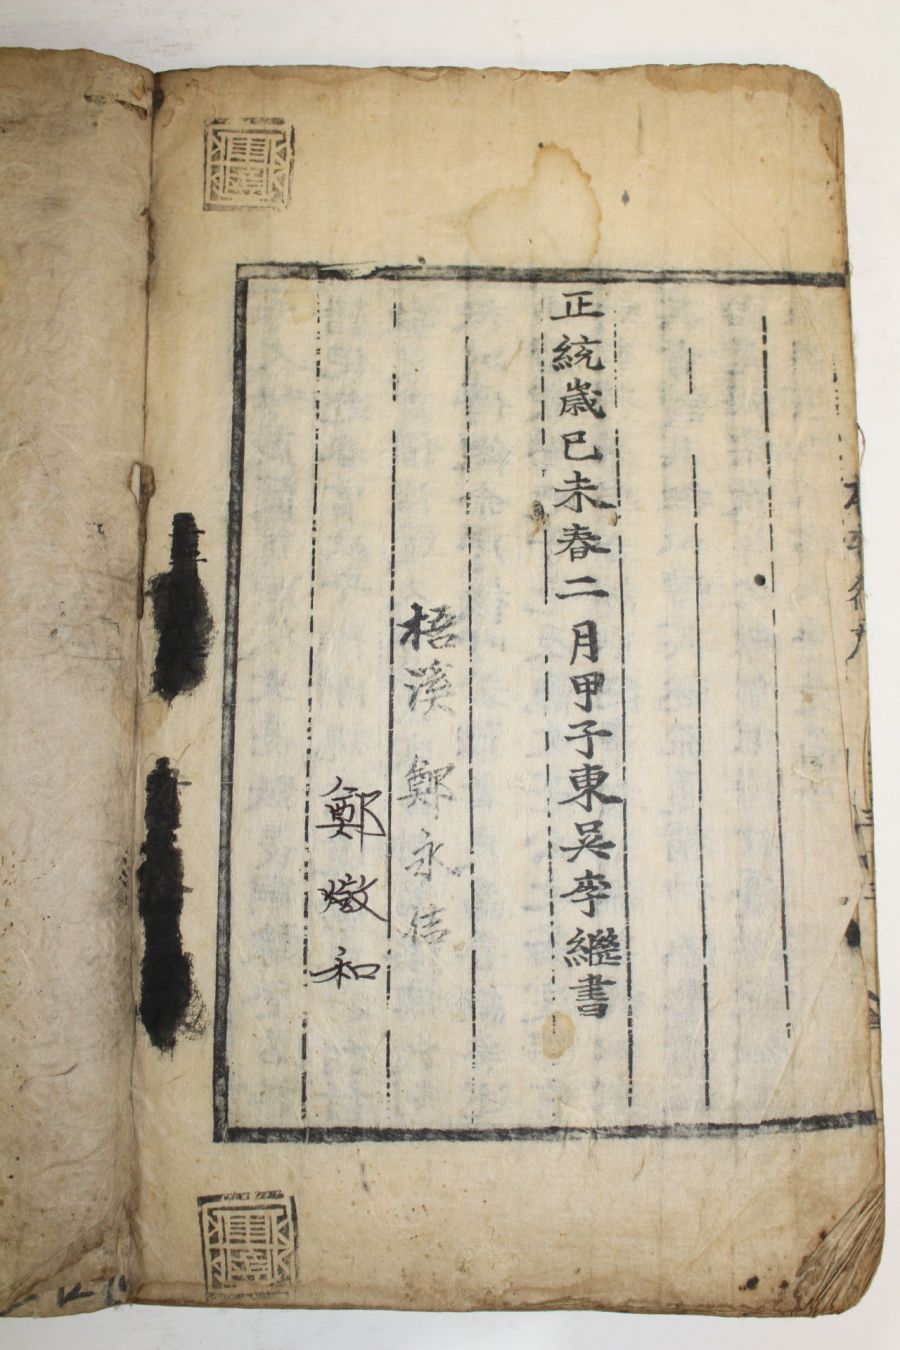 正統歲己未春二月甲子東吳李繼書
梧溪鄭永佶
鄭燉和